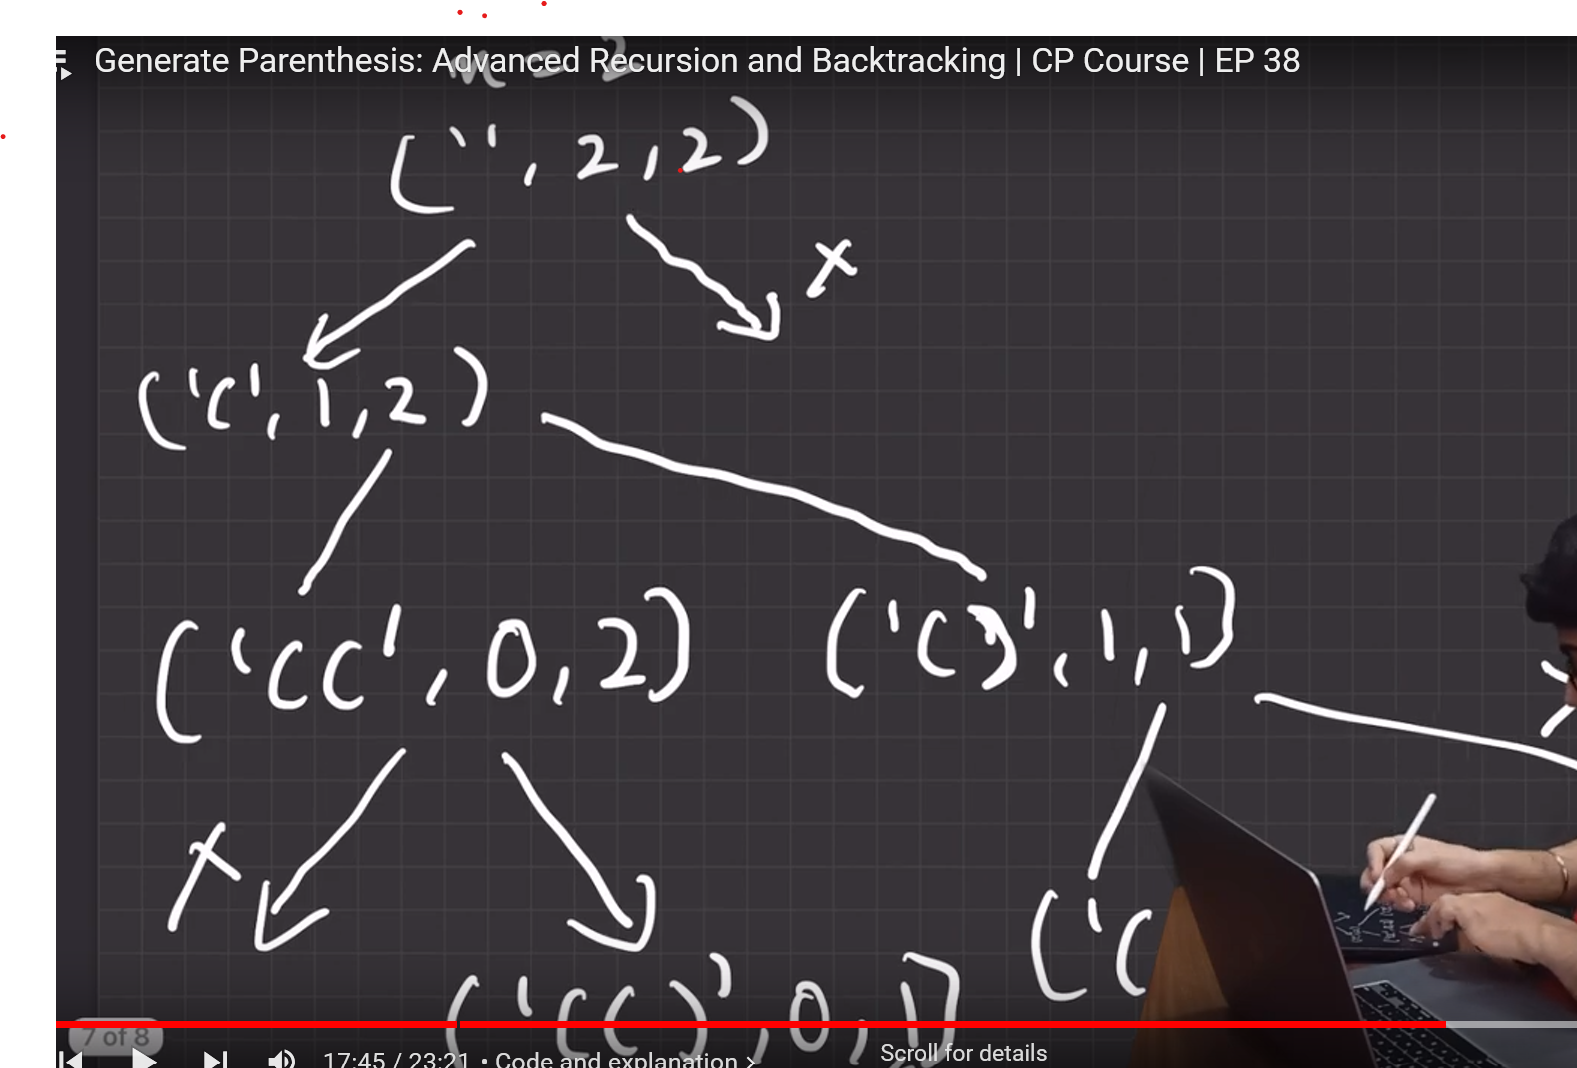 Generate Parenthesis: Advanced Recursion and Backtracking | CP Course | EP 38
n = 2
('', 2, 2)
x
('(', 1, 2)
('((', 0, 2) ('()', 1, 1)
x
('(
('(()', 0, 1)
7 of 8
17:45 / 23:21 • Code and explanation >
Scroll for details